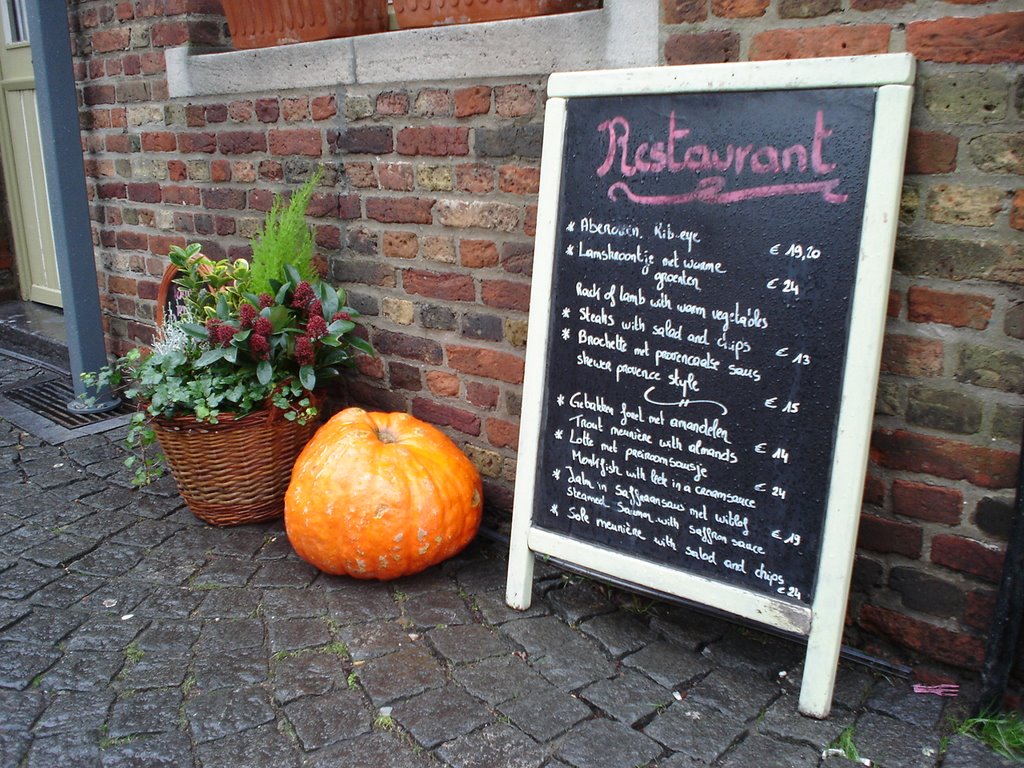 Restaurant
* Aberdeen, Rib-eye € 19,20
* Lamskroontje met warme
groenten € 24
Rack of lamb with warm vegetables
* Steaks with salad and chips € 13
* Brochette met provencaalse saus
skewer provence style € 15
* Gebakken forel met amandelen
Trout meunière with almonds € 14
* Lotte met preiroomsausje
Monkfish with leek in a creamsauce € 24
* Zalm in Saffraansaus met witlof
Steamed Saumon with saffron sauce € 19
* Sole meunière with salad and chips
€ 24